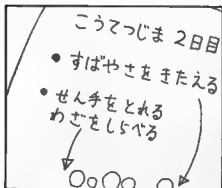 こうてつじま 2日目
• すばやさをきたえる
• せん手をとれる
わざをしらべる